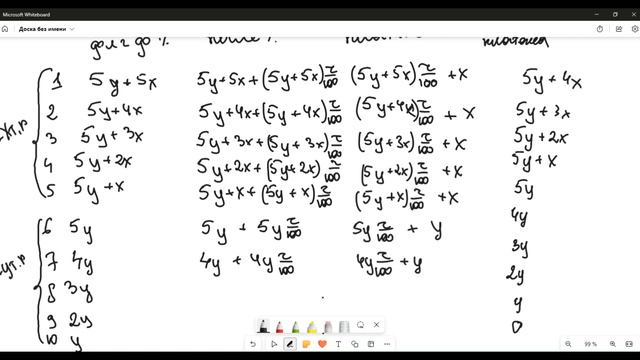 Microsoft Whiteboard
Доска без имени
долг до %
1 5y+5x 5y+5x+(5y+5x)r/100 (5y+5x)r/100 +x 5y+4x
2 5y+4x 5y+4x+(5y+4x)r/100 (5y+4x)r/100 +x 5y+3x
3 5y+3x 5y+3x+(5y+3x)r/100 (5y+3x)r/100 +x 5y+2x
4 5y+2x 5y+2x+(5y+2x)r/100 (5y+2x)r/100 +x 5y+x
5 5y+x 5y+x+(5y+x)r/100 (5y+x)r/100 +x 5y
6 5y 5y+5y r/100 5y r/100 +y 4y
7 4y 4y+4y r/100 4y r/100 +y 3y
8 3y 2y
9 2y y
10 y 0
99 %